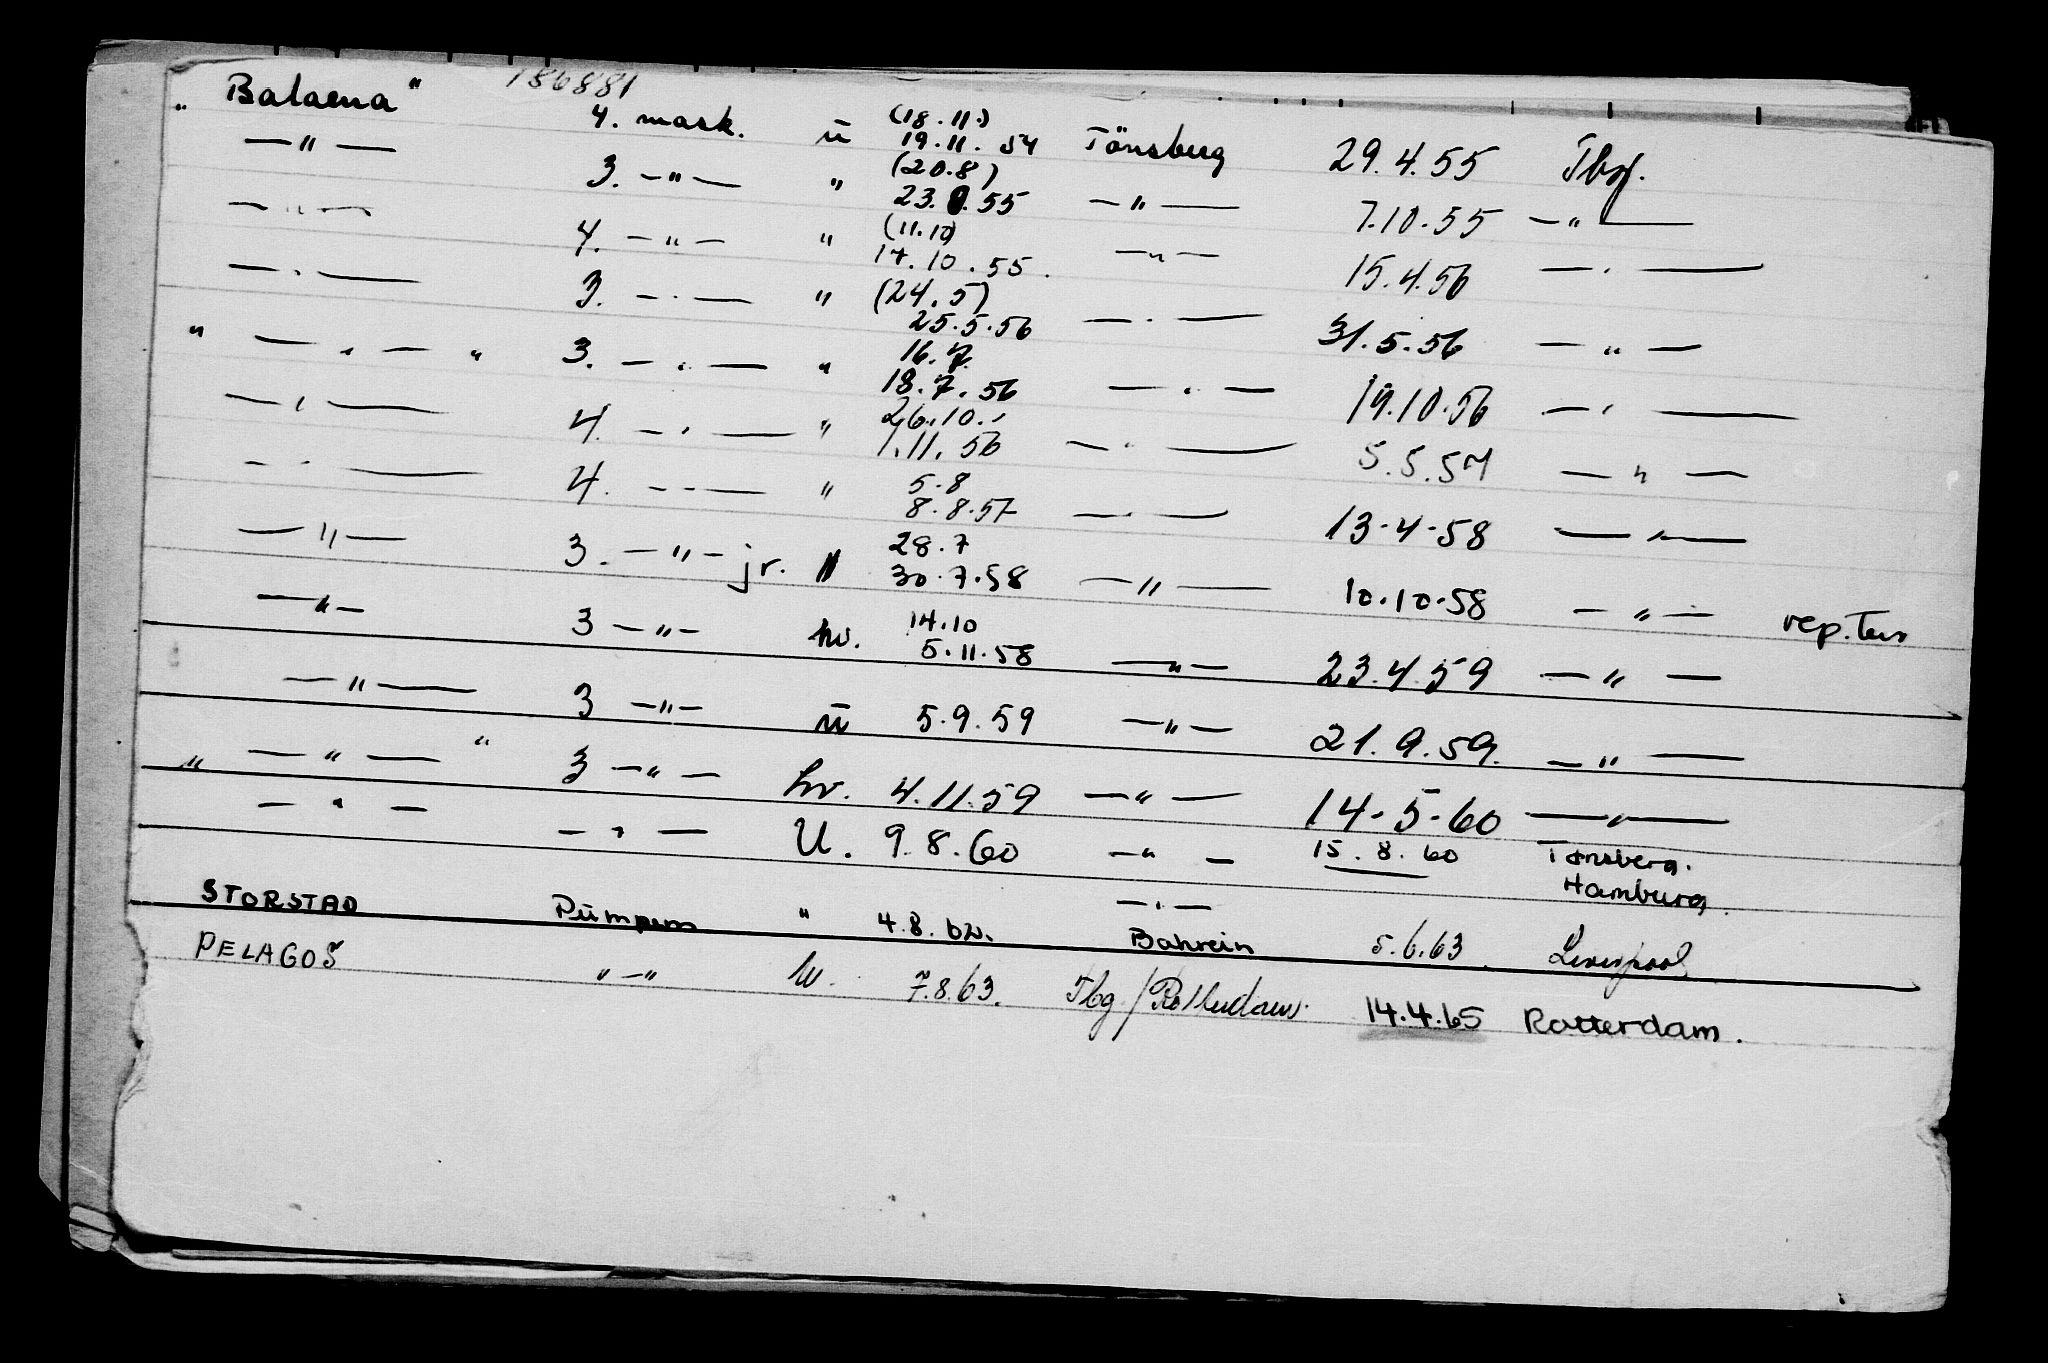 186881
"Balaena" 4. mask. ü (18.11.) 19.11.54 Tönsberg 29.4.55 Tbg.
—"— 3. —"— " (20.8) 23.8.55 —"— 7.10.55 —"—
—"— 4. —"— " (11.10) 17.10.55. —"— 15.4.56 —"—
—"— 3. —"— " (24.5) 25.5.56 —"— 31.5.56 —"—
" —"— " 3. —"— " 16.7. 18.7.56 —"— 19.10.56 —"—
—"— 4. —"— " 26.10. 1.11.56 —"— 5.5.57 —"—
—"— 4. —"— " 5.8 8.8.57 —"— 13-4-58 —"—
—"— 3. —"— jr. " 28.7 30.7.58 —"— 10.10.58 —"— rep.
—"— 3 —"— hv. 14.10 5.11.58 —"— 23.4.59 —"—
—"— 3 —"— ü 5.9.59 —"— 21.9.59. —"—
" —"— " 3 —"— hv. 4.11.59 —"— 14-5-60 —"—
—"— —"— U. 9.8.60 —"— 15.8.60 Tønsberg.
—"— Hamburg.
STORSTAD Pumpem " 4.8.62. Bahrein 5.6.63. Liverpool
PELAGOS "—" hv. 7.8.63. Tbg/Rotterdam. 14.4.65 Rotterdam.